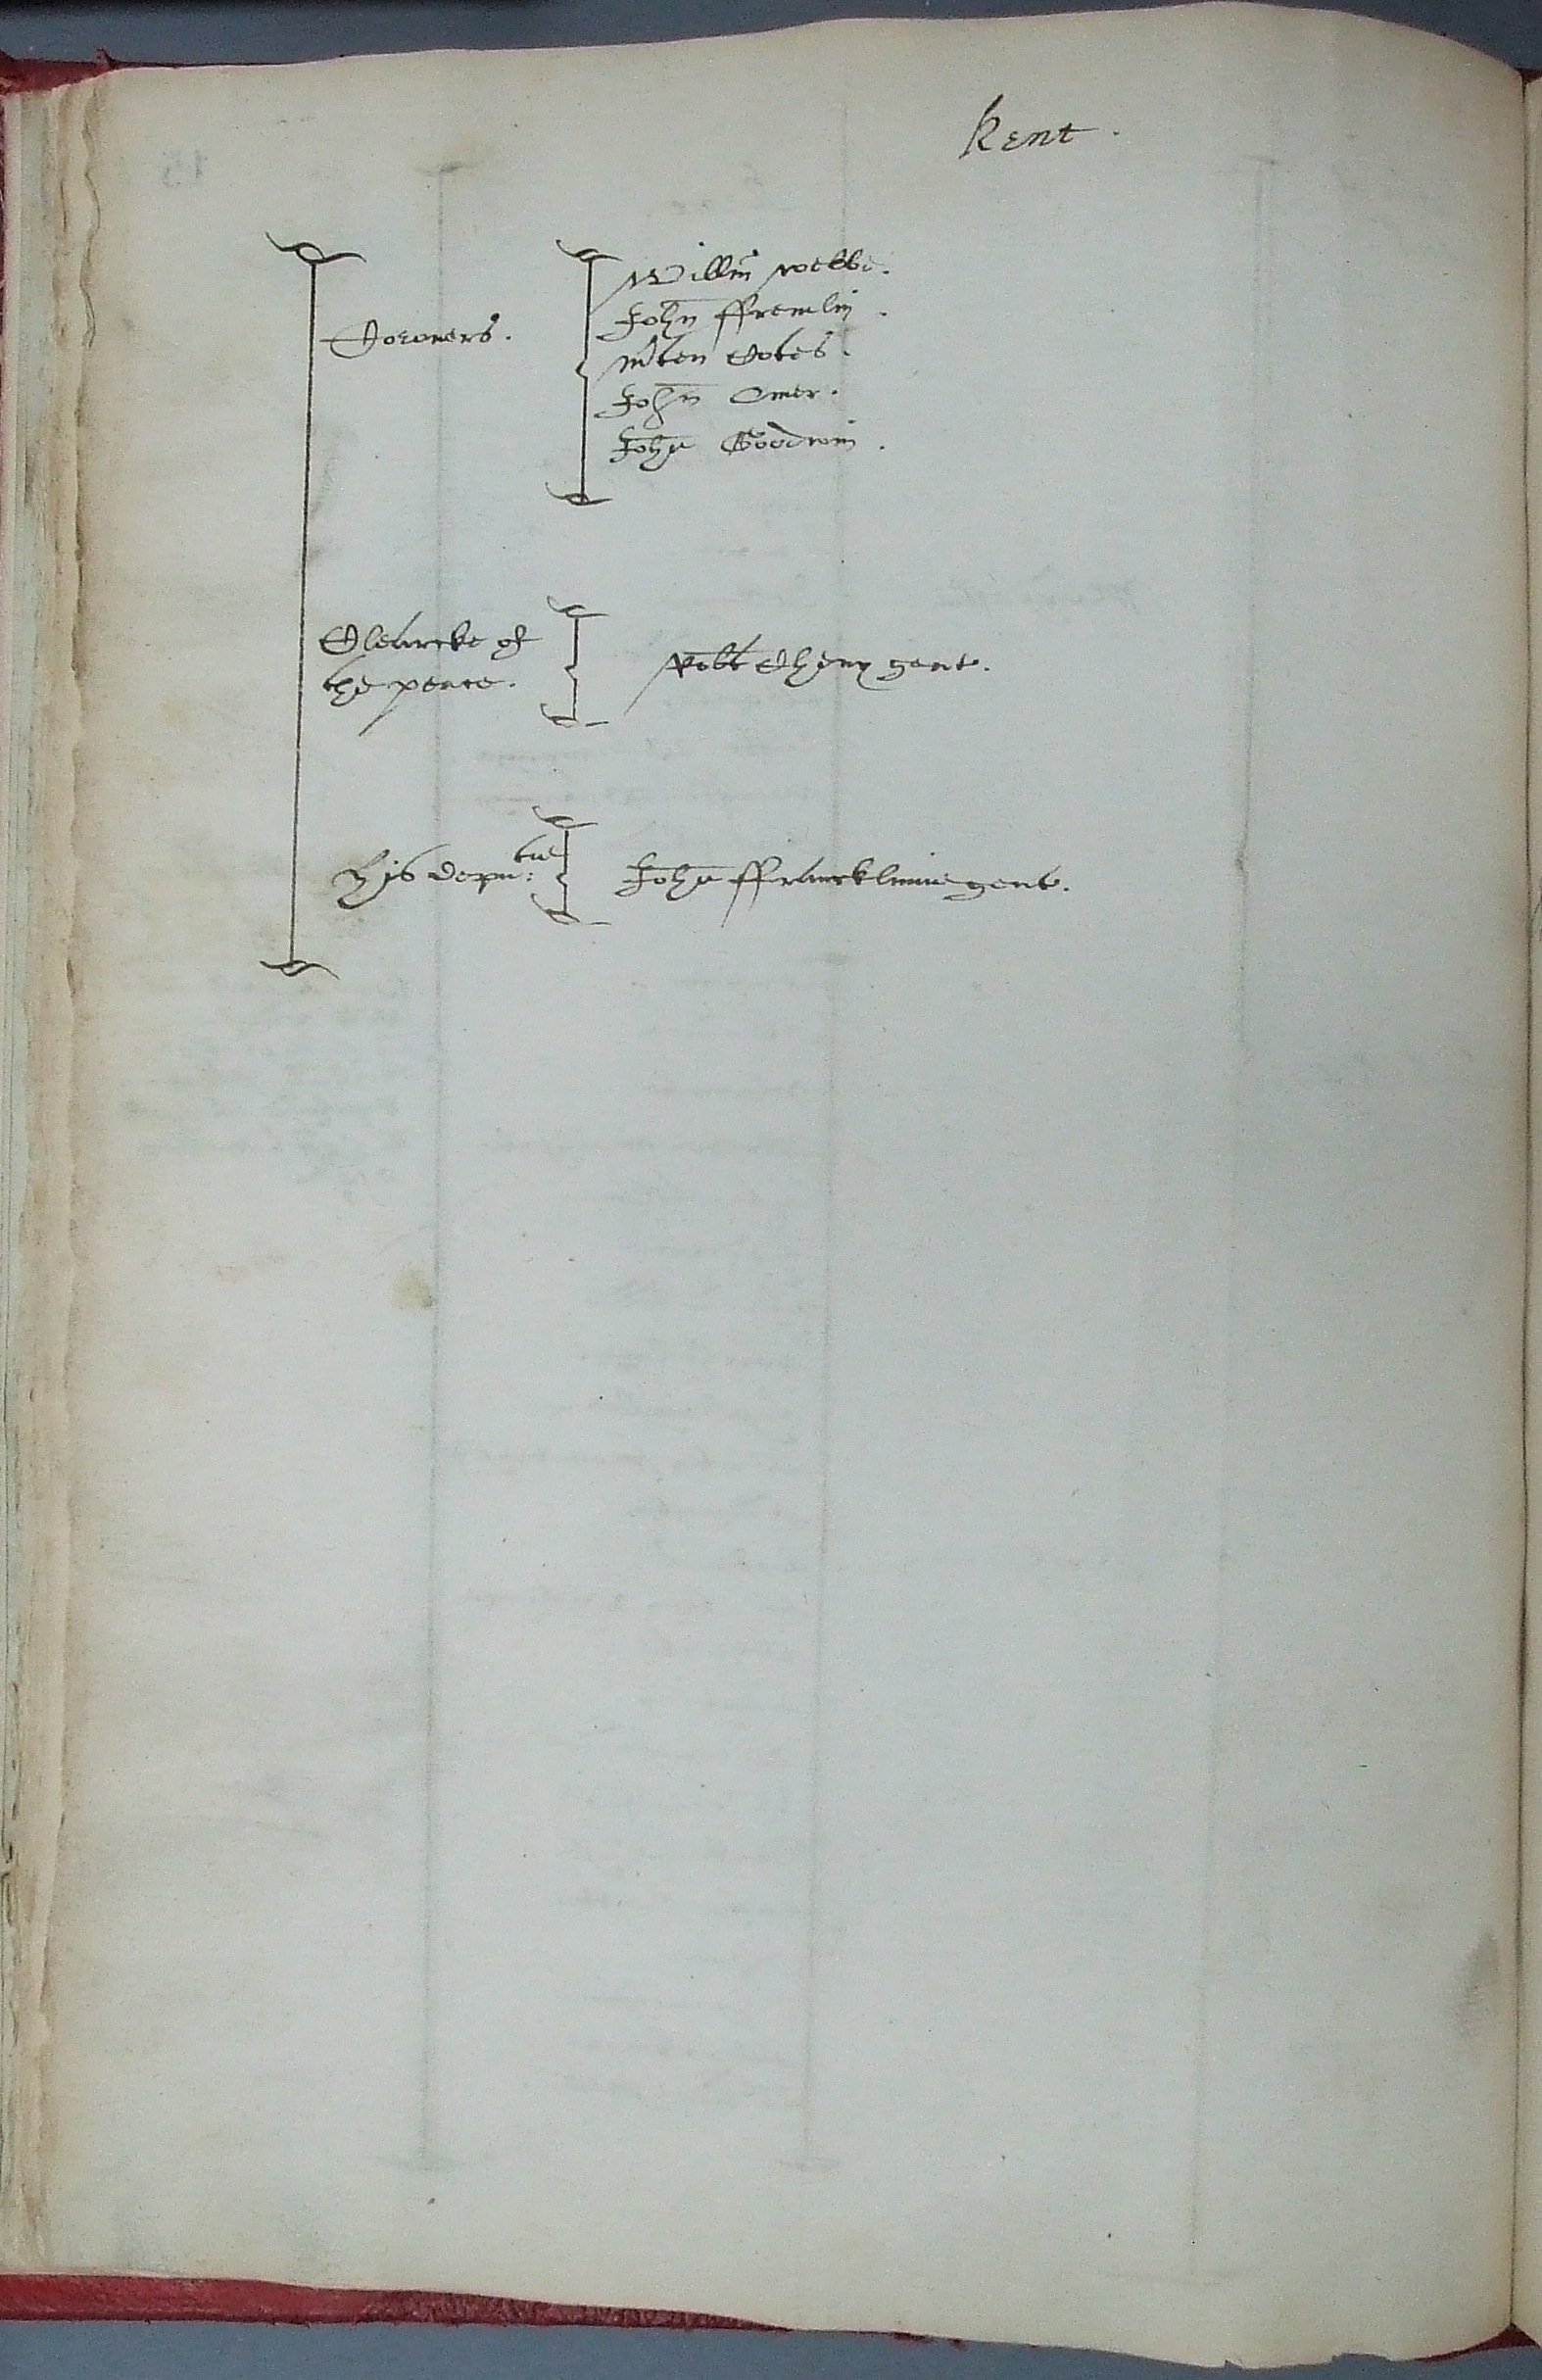 Kent.
Coroners.
Willm̃ Webbe.
John ffremlin.
Mʳten Cotes.
John Omer.
John Goodwin.
Clearcke of
the peace.
Robt Cheny gent.
His depu:tie
John ffrancklinne gent.